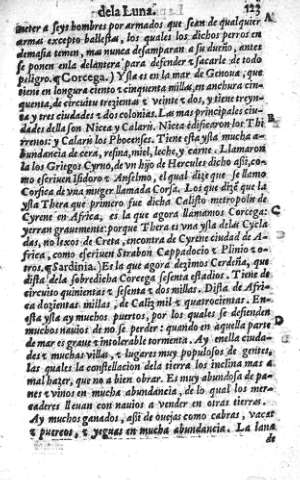 de la Luna. 123
meter a seys hombres por armados que sean de qualquier
armas excepto ballestas, los quales los dichos perros en
demasia temen, mas nunca desamparan a su dueño, antes
se ponen en la delantera para defender ⁊ sacarle de todo
peligro. ¶ Corcega.) Ysla es en la mar de Genoua, que
tiene en longura ciento ⁊ cinquenta millas, en anchura cin-
quenta, de circuitu trezientas ⁊ veinte ⁊ dos, y tiene treyn-
ta y tres ciudades ⁊ dos colonias. Las mas principales ciu-
dades della son Nicea y Calaris. Nicea edificaron los Thi
rrenos: y Calaris los Phocenses. Tiene esta ysla mucha a-
bundancia de cera, resina, miel, leche, y carne. Llamaron
la los Griegos Cyrno, de vn hijo de Hercules dicho assi, co-
mo escriuen Isidoro ⁊ Anselmo, el qual dize que se llamo
Corsica de vna muger llamada Corsa. Los que dizẽ que la
ysla Thera que primero fue dicha Calisto metropolis de
Cyrene en Africa, es la que agora llamamos Corcega:
yerran grauemente: porque Thera es vna ysla de las Cycla
das, no lexos de Creta, encontra de Cyrene ciudad de A-
frica, como escriuen Strabon Cappadocio ⁊ Plinio ⁊ o-
tros. ¶ Sardinia.) Es la que agora dezimos Cerdeña, que
dista de la sobredicha Corcega sesenta estadios. Tiene de
circuito quinientas ⁊ sesenta ⁊ dos millas. Dista de Afri-
ca dozientas millas, de Caliz mil ⁊ quatrocientas. En-
esta ysla ay muchos puertos, por los quales se defienden
muchos nauios de no se perder: quando en aquella parte
de mar es graue ⁊ intolerable tormenta. Ay en ella ciuda-
des ⁊ muchas villas, ⁊ lugares muy populosos de gentes,
las quales la constellacion de la tierra los inclina mas a
mal hazer, que no a bien obrar. Es muy abundosa de pa-
nes ⁊ vinos en mucha abundancia, de lo qual los mer-
caderes lleuan con nauios a vender en otras tierras.
Ay muchos ganados, assi de ouejas como cabras, vacas
⁊ puercos, ⁊ yeguas en mucha abundancia. La lana
de
A
B
C
D